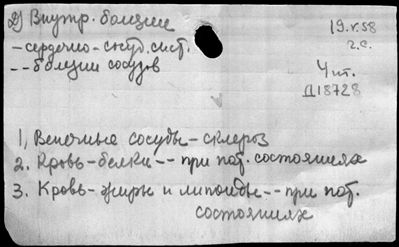 2) Внутр. болезни
19.V.58
-сердечно-сосуд. сист.
г.с.
--болезни сосудов
Чит.
Д18728
1, Венечные сосуды-склероз
2. Кровь-белки--при пат. состояниях
3. Кровь-жиры и липоиды--при пат.
состояниях